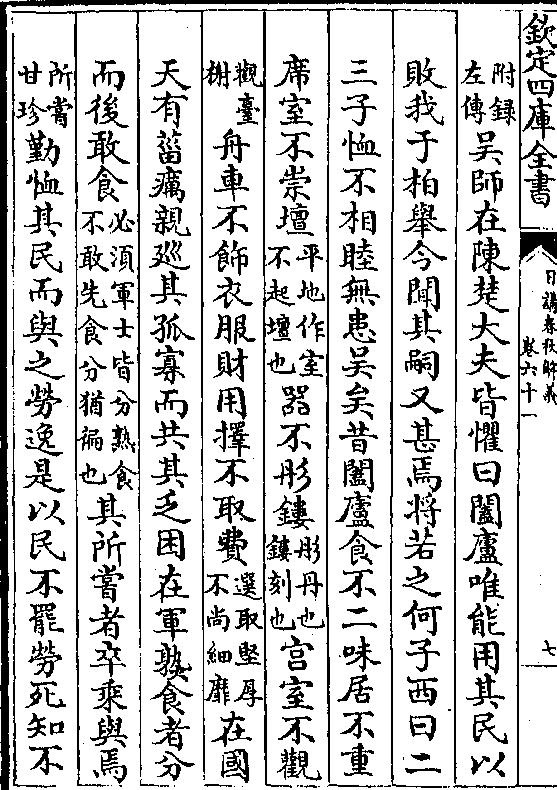 欽定四庫全書
日講春秋解義
卷六十一
七
附録左傳吳師在陳楚大夫皆懼曰闔廬唯能用其民以
敗我于柏舉今聞其嗣又甚焉將若之何子西曰二
三子恤不相睦無患吳矣昔闔廬食不二味居不重
席室不崇壇平地作室不起壇也器不彤鏤彤丹也鏤刻也宮室不觀
觀臺榭舟車不飾衣服財用擇不取費選取堅厚不尚細靡在國
天有菑癘親廵其孤寡而共其乏困在軍熟食者分
而後敢食必須軍士皆分熟食不敢先食分猶徧也其所嘗者卒乘與焉
所嘗甘珍勤恤其民而與之勞逸是以民不罷勞死知不